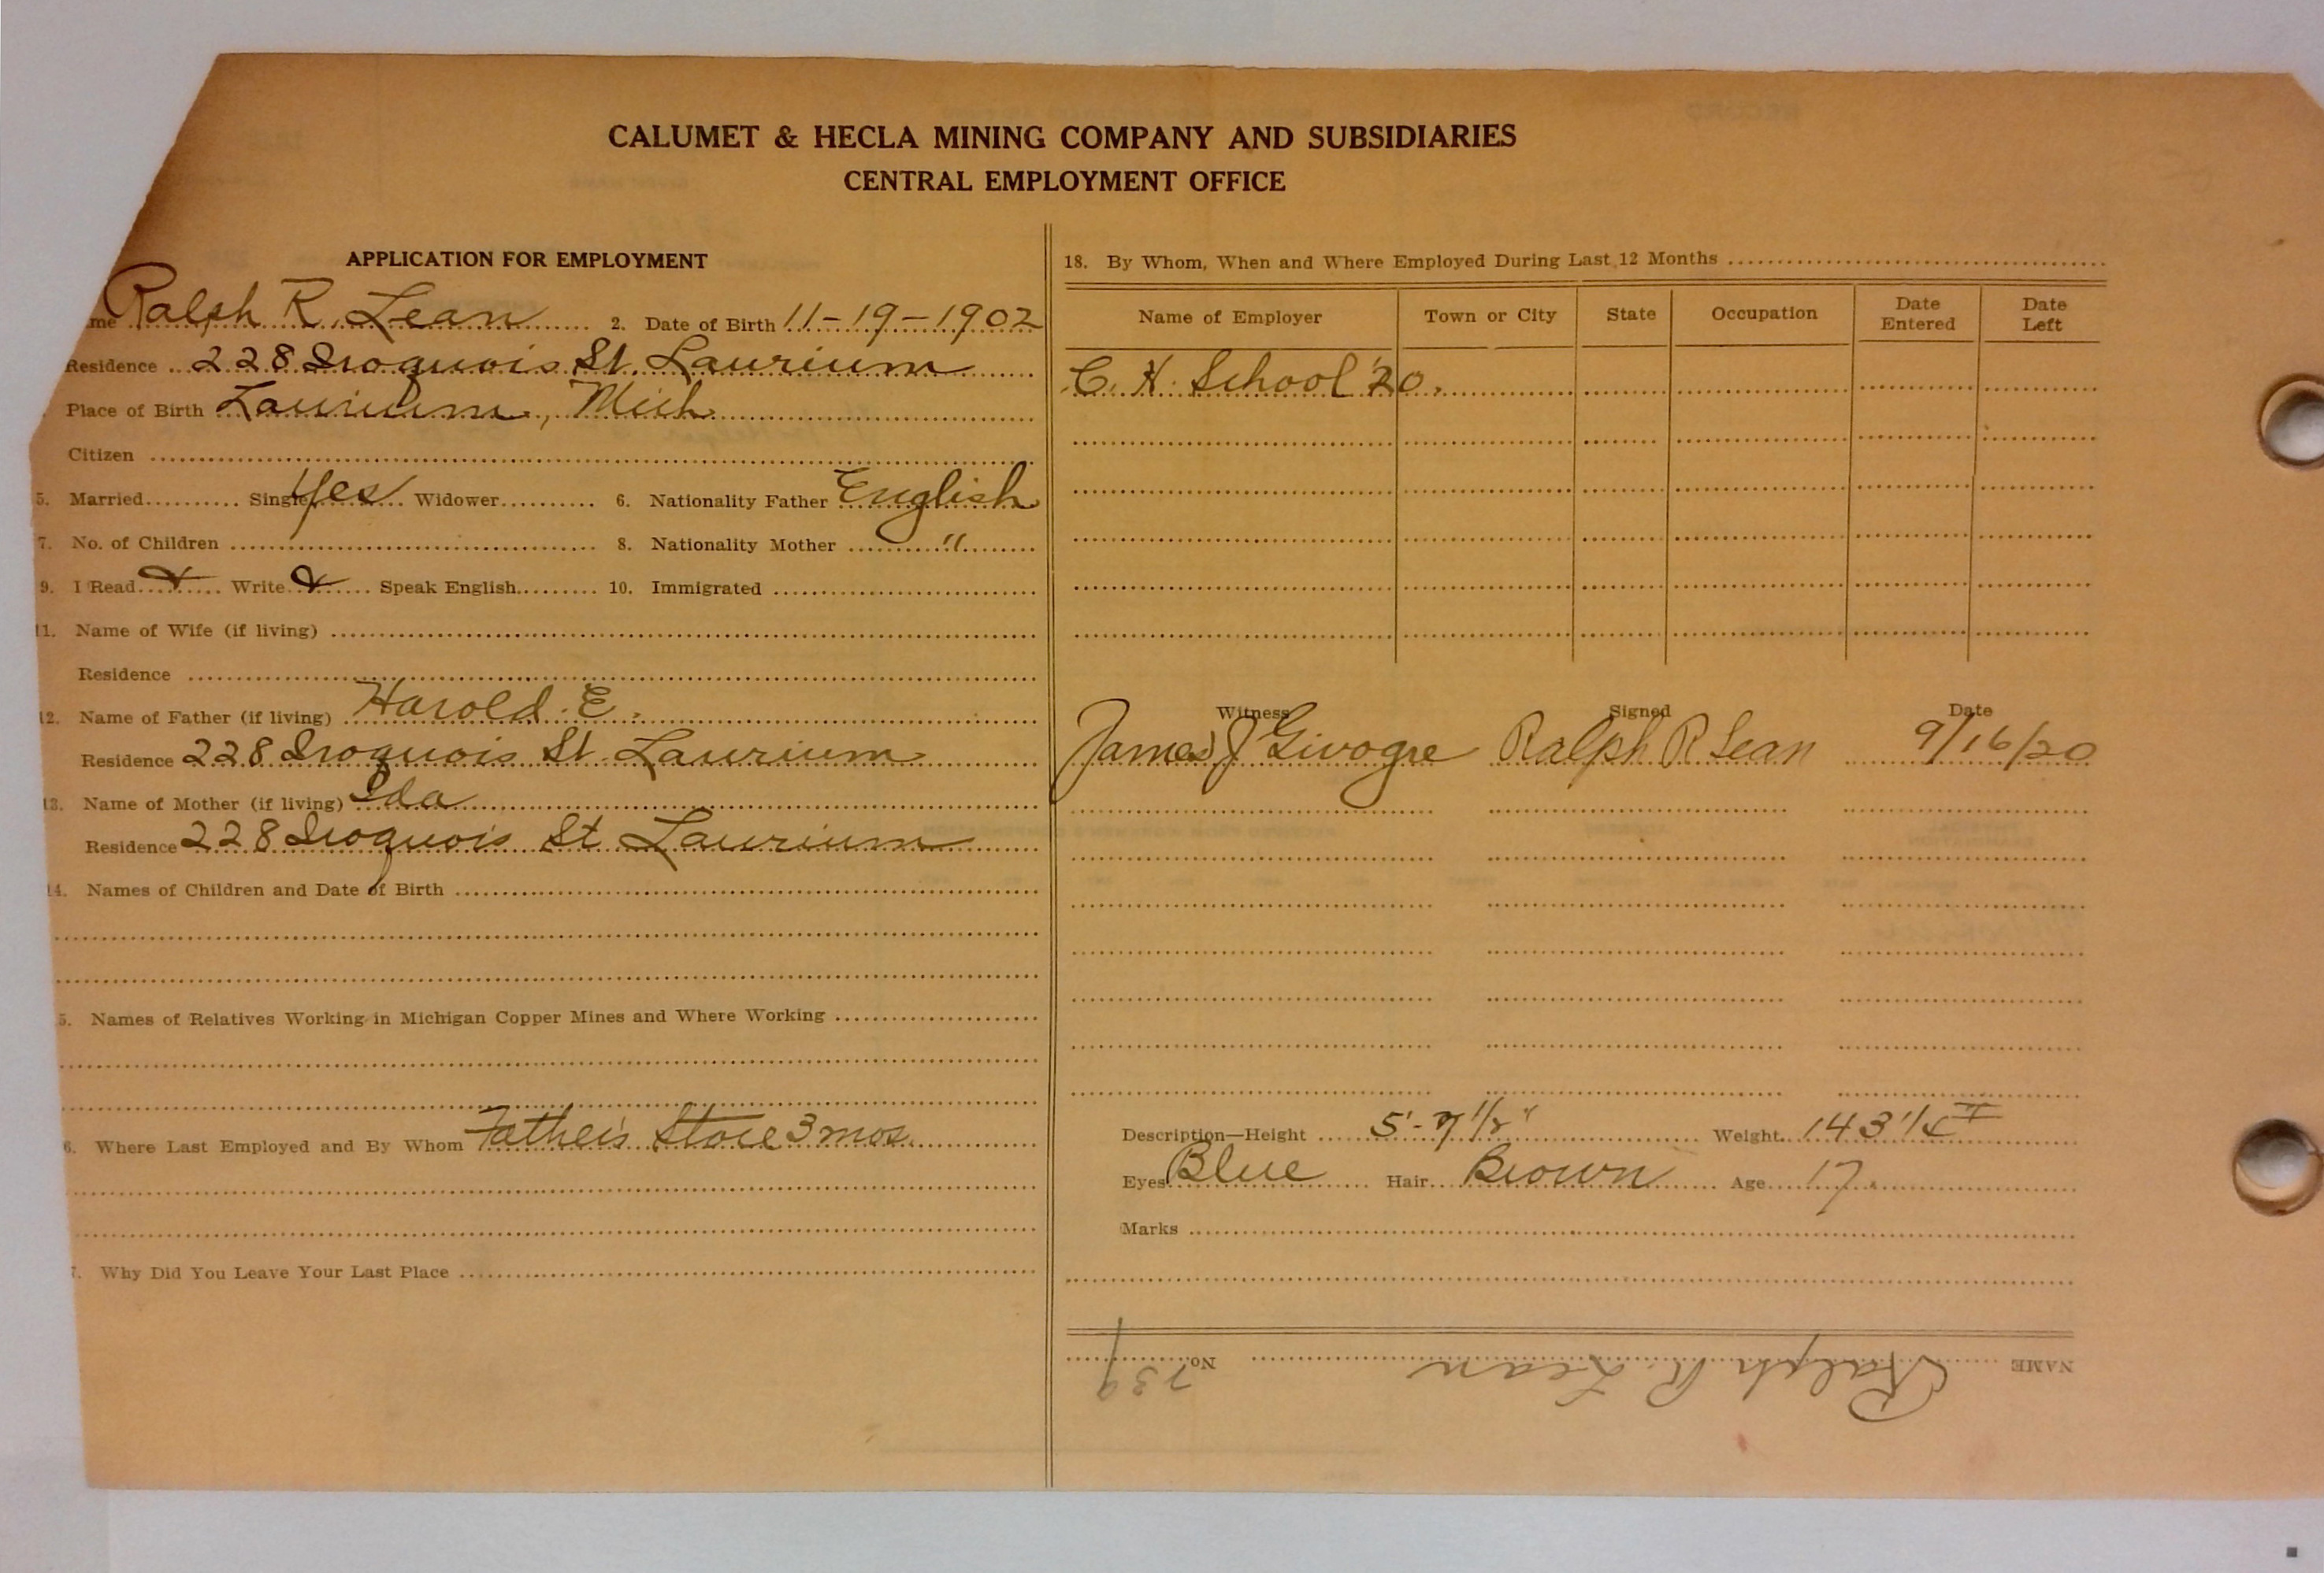 CALUMET & HECLA MINING COMPANY AND SUBSIDIARIES
CENTRAL EMPLOYMENT OFFICE
APPLICATION FOR EMPLOYMENT
me Ralph R. Lean 2. Date of Birth 11-19-1902
Residence 228 Iroquois St. Laurium
Place of Birth Laurium, Mich
Citizen
5. Married Single Yes Widower 6. Nationality Father English
7. No. of Children 8. Nationality Mother "
9. I Read Write Speak English 10. Immigrated
11. Name of Wife (if living)
Residence
12. Name of Father (if living) Harold E.
Residence 228 Iroquois St. Laurium
13. Name of Mother (if living) Ida
Residence 228 Iroquois St Laurium
14. Names of Children and Date of Birth
5. Names of Relatives Working in Michigan Copper Mines and Where Working
6. Where Last Employed and By Whom Father's Store 3 mos.
7. Why Did You Leave Your Last Place
18. By Whom, When and Where Employed During Last 12 Months
Name of Employer Town or City State Occupation Date Entered Date Left
C. H. School '20.
Witness Signed Date
James J Givogre Ralph R Lean 9/16/20
Description—Height 5'-7 1/2" Weight 143
Eyes Blue Hair Brown Age 17.
Marks
NAME Ralph R. Lean No. 739